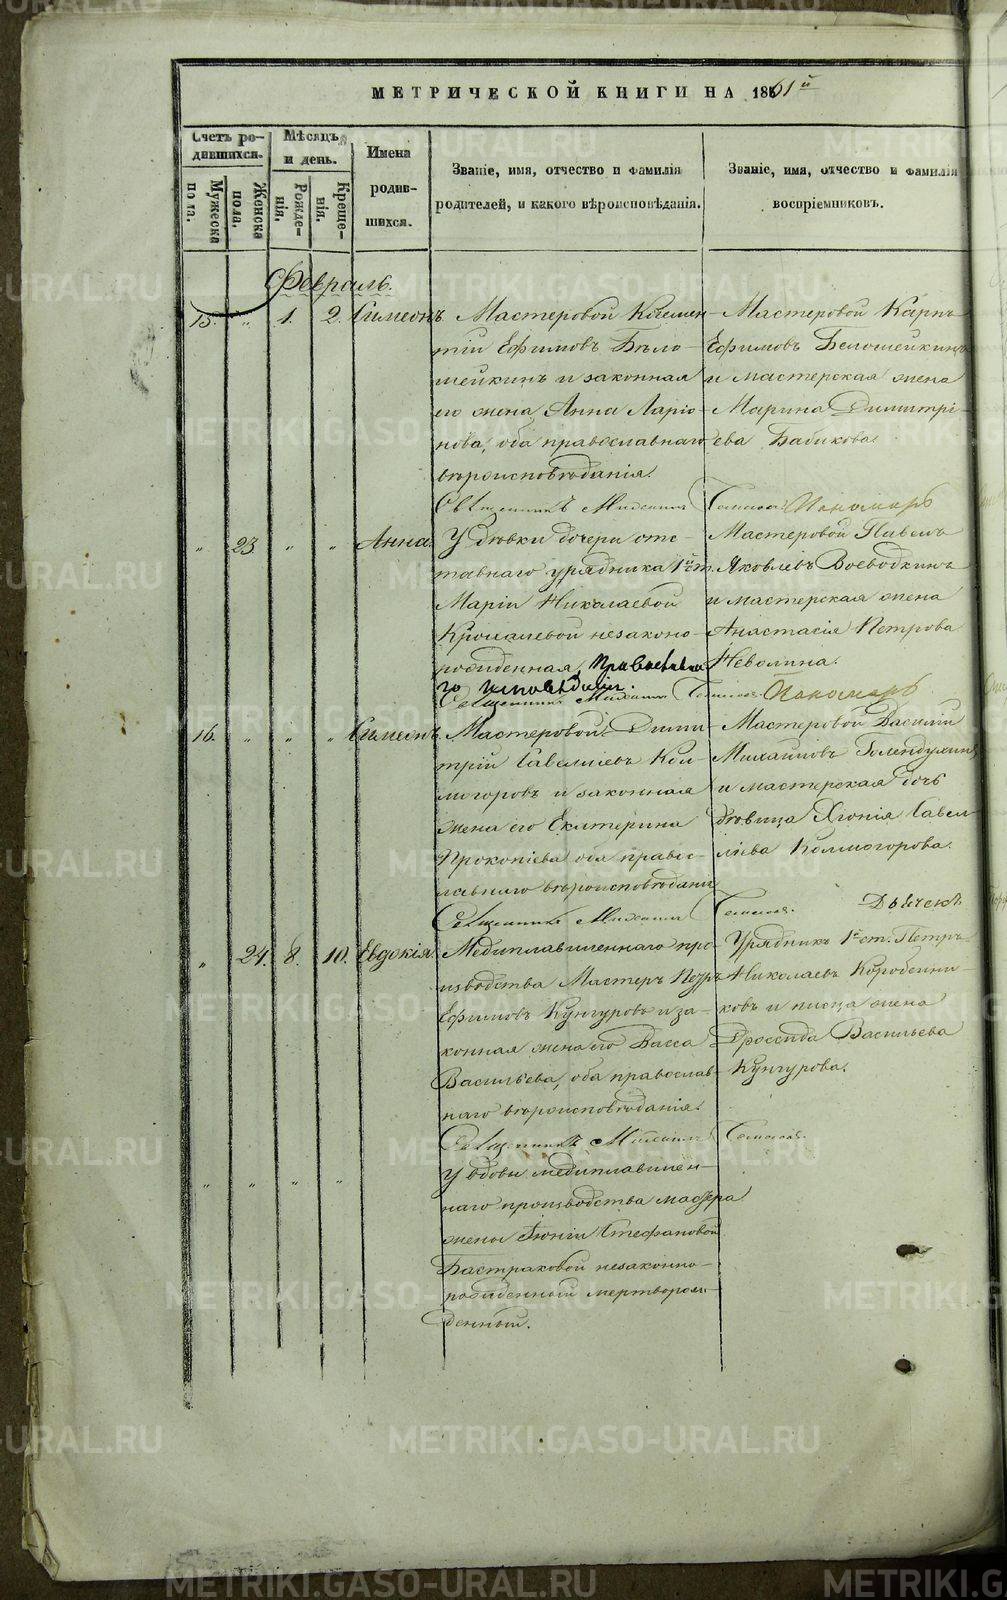 МЕТРИЧЕСКОЙ КНИГИ НА 1861й
Счетъ родившихся.
Мужеска пола.
Женска пола.
Мѣсяцъ и день.
Рожденія.
Крещенія.
Имена родившихся.
Званіе, имя, отчество и фамилія родителей, и какого вѣроисповѣданія.
Званіе, имя, отчество и фамилія воспріемниковъ.
Февраль.
15. " 1. 2. Симеонъ
Мастеровой
тій Ефимовъ Бѣло-
шейкинъ и законная
его жена Анна Ларіо-
нова, оба православнаго
вѣроисповѣданія.
Священникъ Михаилъ
Мастеровой Карпъ
Ефимовъ Белошейкинъ
и мастерская жена
Марина Димитрі-
ева Бабикова.
Пономарь
" 23 " " Анна.
У дѣвки дочери отс-
тавнаго урядника 1й ст.
Маріи Николаевой
незаконо-
рожденная, Православна
го исповѣданія.
Священникъ Михаилъ
Мастеровой Павелъ
Яковлевъ Воеводкинъ
и мастерская жена
Анастасія Петрова
Неволина.
Пономарь
16. " " " Симеонъ
Мастеровой Дими-
трій Савелиевъ Кол-
могоровъ и законная
жена его Екатерина
Прокопіева оба право-
лавнаго вѣроисповѣдані
Священникъ Михаилъ
Мастеровой Василий
Михайловъ Голендухинъ
и мастерская дочь
дѣвица Савел-
ліева Колмогорова.
Дьячекъ
" 24. 8. 10. Евдокія.
Медиплавиленнаго про-
изводства Мастеръ Петръ
Ефимовъ Кунгуровъ и за-
конная жена его Васса
Васильева, оба православ-
наго вѣроисповѣданія.
Священникъ Михаилъ
Урядникъ 1й ст. Петръ
Николаевъ Коробенни-
ковъ и писца жена
Дросида Васильева
Кунгурова.
" " " "
У вдовы медиплавилен-
наго производства мастера
жены Стефановой
Бастраковой незаконно-
рожденный мертворож-
денный.
METRIKI.GASO-URAL.RU